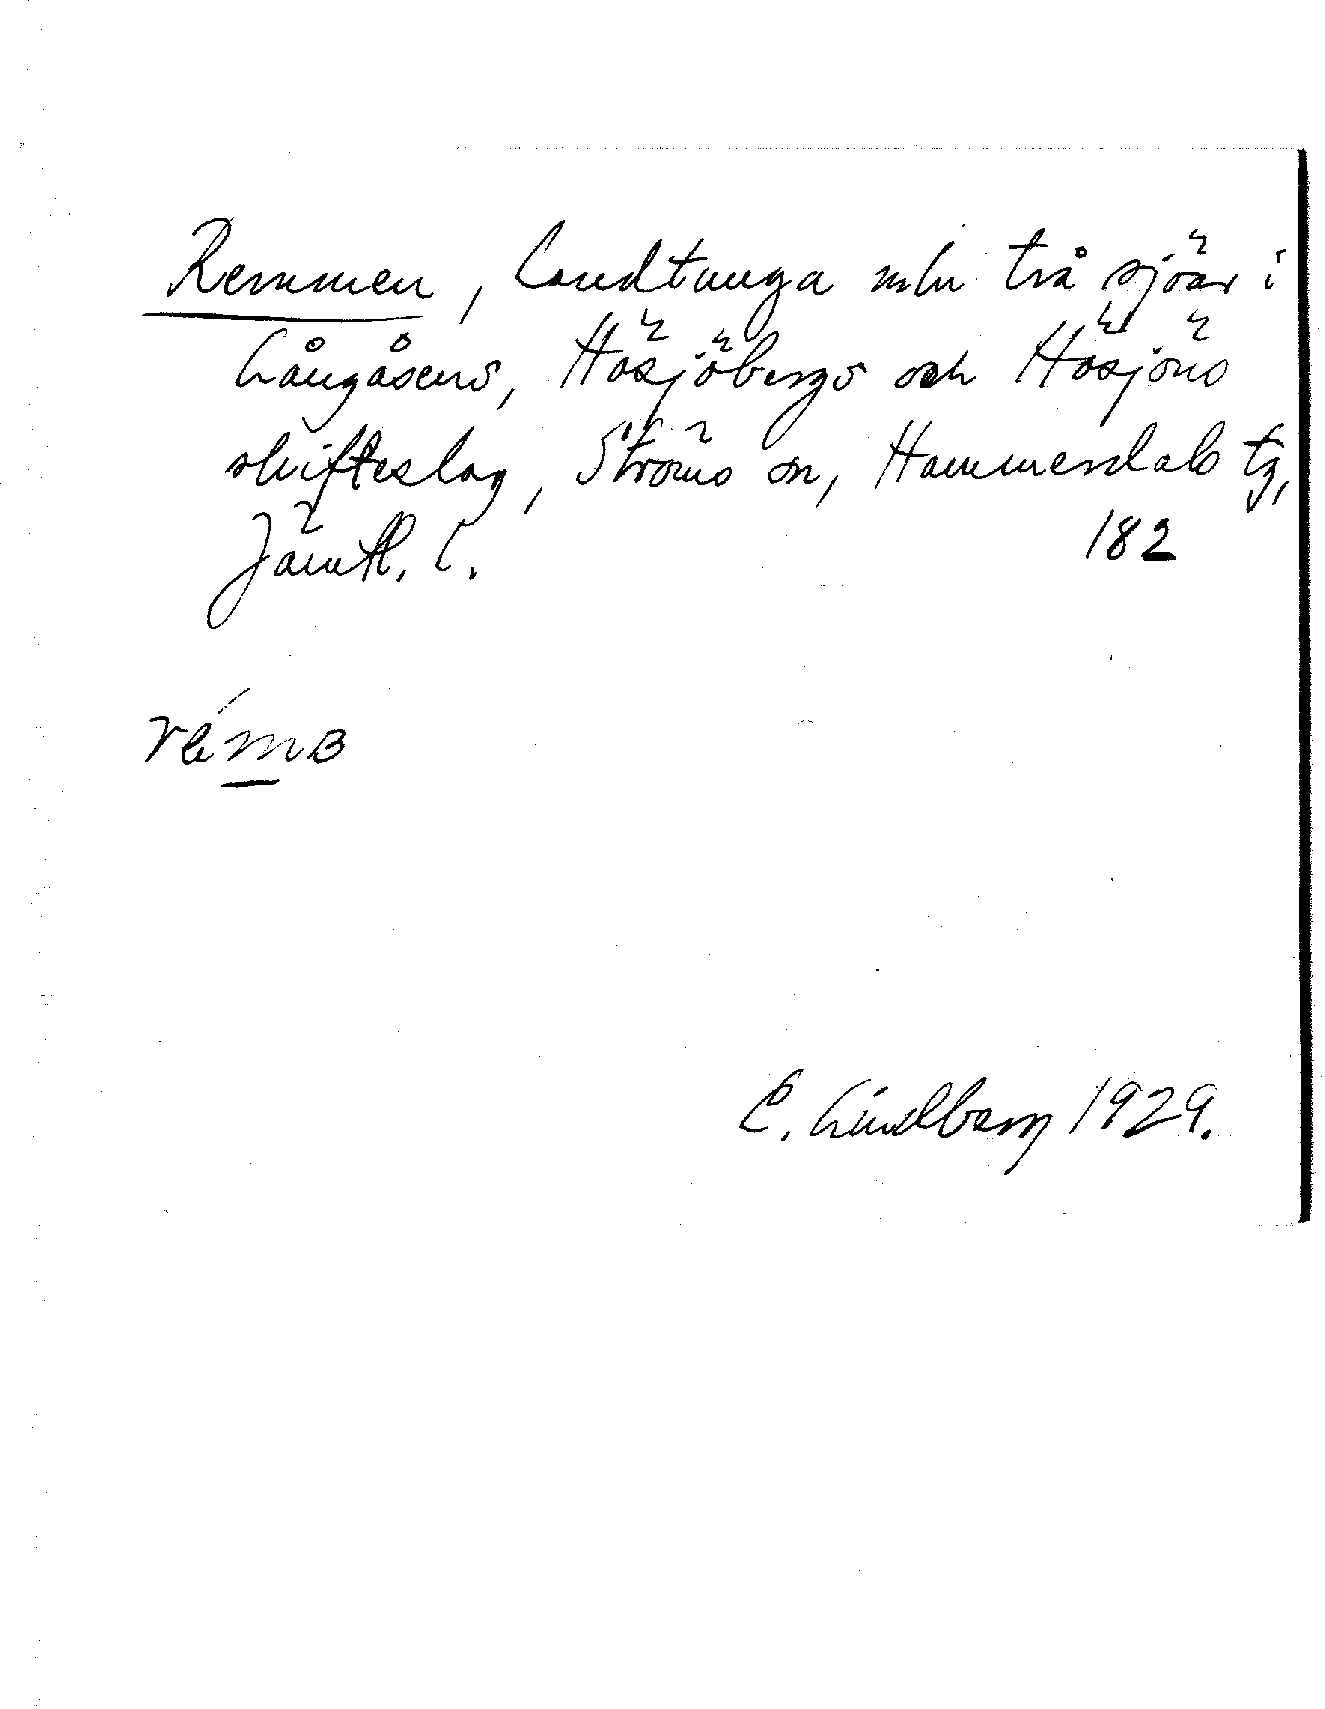 Remmen, landtunga mln två sjöar i
Långåsens, Häsjöbergs och Häsjöns
skifteslag, Ströms sn, Hammerdals tg,
Jämtl. l. 182
rémв
E. Lindberg 1929.